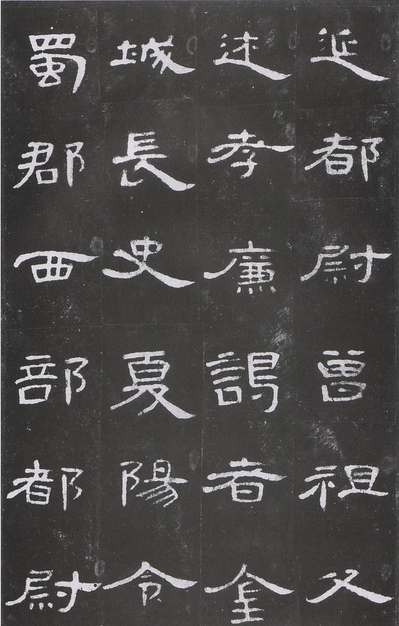 延都尉曾祖父
述孝廉謁者金
城長史夏陽令
蜀郡西部都尉